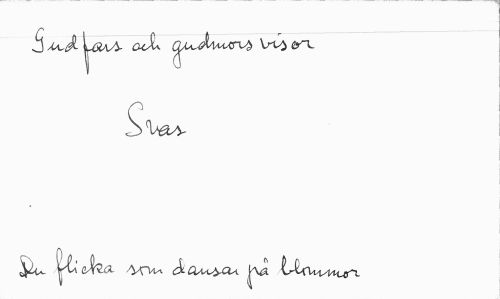 Gudfars och gudmors visor
Svas
Du flicka som dansar på blommor